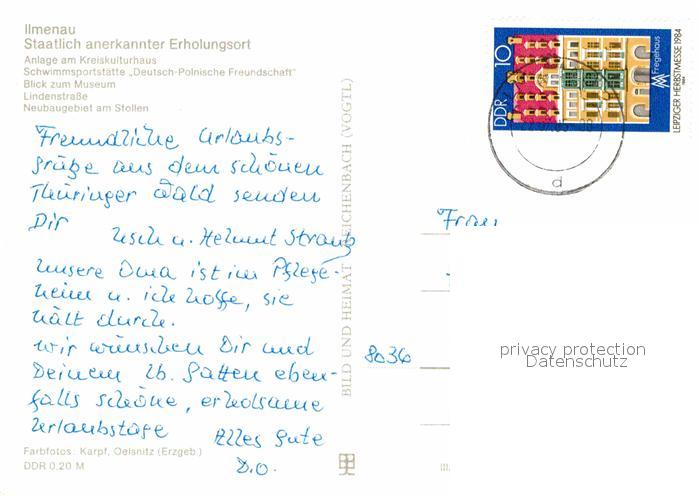 Ilmenau
Staatlich anerkannter Erholungsort
Anlage am Kreiskulturhaus
Schwimmsportstätte „Deutsch-Polnische Freundschaft"
Blick zum Museum
Lindenstraße
Neubaugebiet am Stollen
Freundliche Urlaubs-
grüße aus dem schönen
Thüringer Wald senden
Dir
Usch u. Helmut Straub
unsere Oma ist im Pflege-
heim u. ich hoffe, sie
hält durch.
wir wünschen Dir und
Deinem lb. Gatten eben-
falls schöne, erholsame
Urlaubstage
Alles Gute
D.O.
Farbfotos: Karpf, Oelsnitz (Erzgeb.)
DDR 0,20 M
BILD UND HEIMAT REICHENBACH (VOGTL)
DDR 10
Fregehaus
LEIPZIGER HERBSTMESSE 1984
d
Frau
8036
privacy protection
Datenschutz